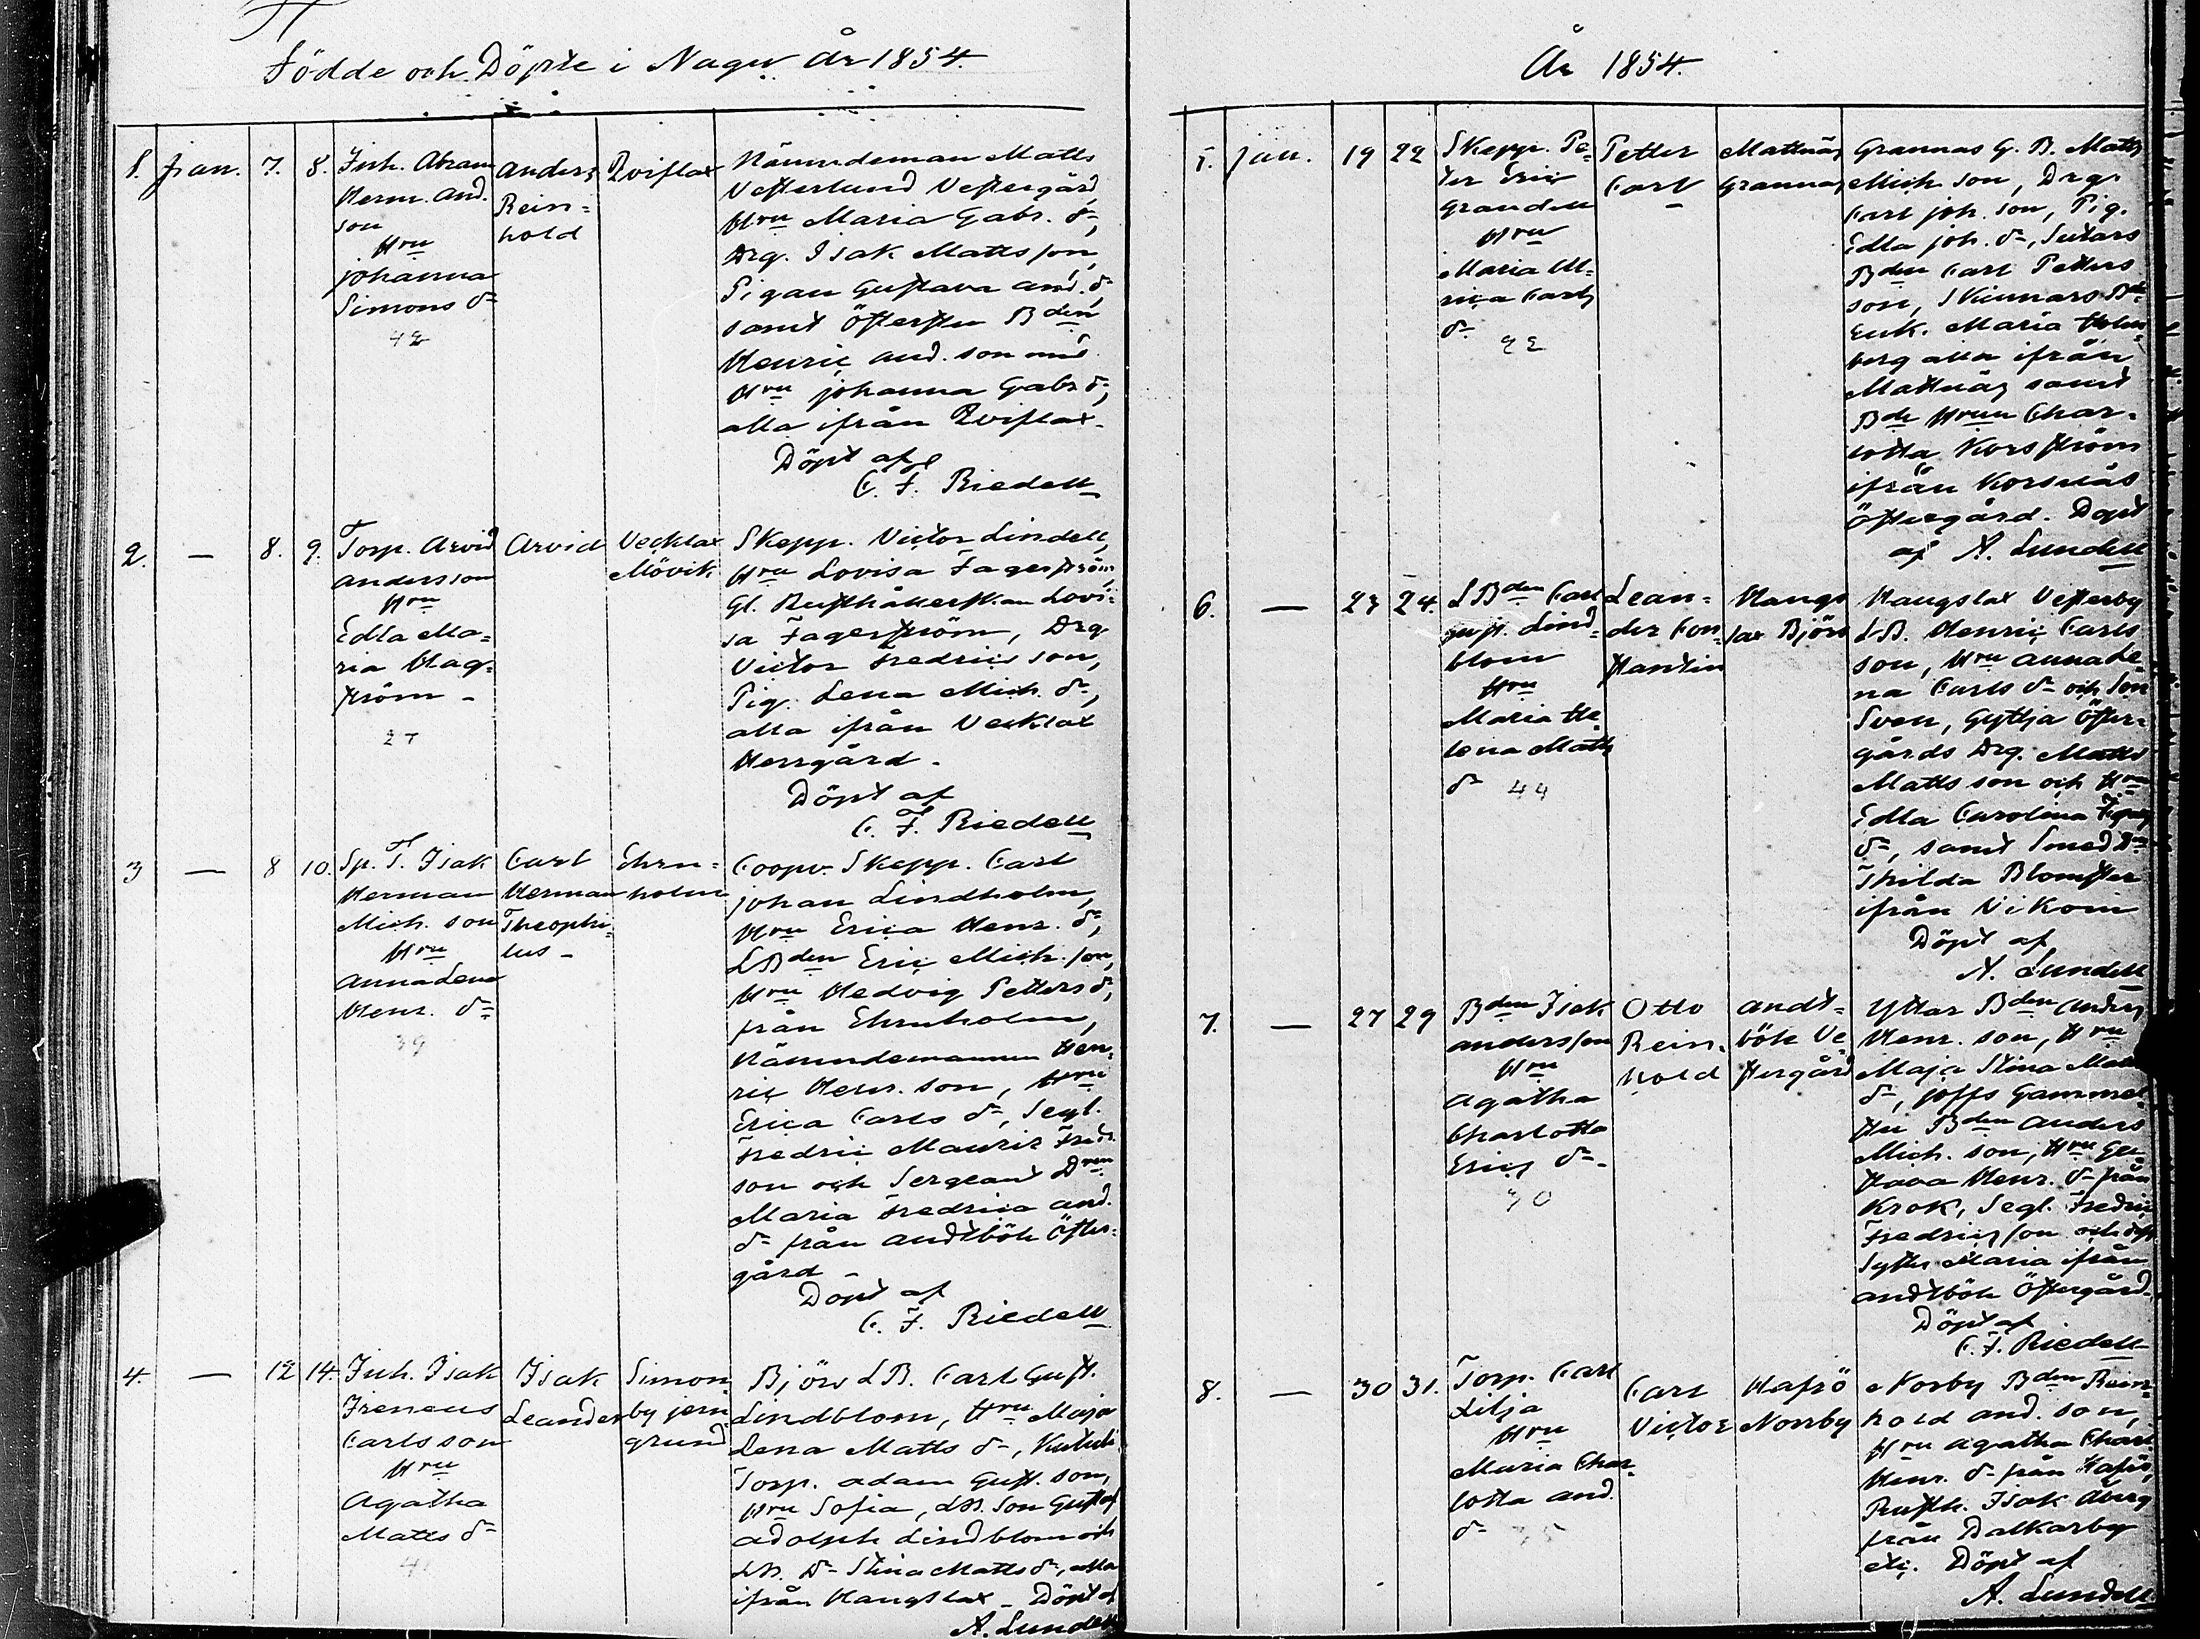 Födde och Döpte i Nagu år 1854.
1. Jan. 7. 8.
Inh. Abram
Herm. And.
son
Hru
Johanna
Simons dr
42
Anders
Rein=
hold
Qviflax
Nämndeman Matts
Vesterlund Vestergård,
Hru Maria Gabr. dr,
Drg. Isak Mattsson,
Pigan Gustava And. dr
samt Österstu Bden
Henric And. son med
Hru Johanna Gabr dr,
alla ifrån Qviflax.
Döpt af
C. F. Riedell
2. — 8. 9.
Torp. Arvid
Andersson
Hru
Edla Ma=
ria Hag=
ström -
27
Arvid
Vecklax
Mövik
Skepp. Victor Lindell,
Hru Lovisa Fagerström,
Gl. Rusthållerskan Lovi=
sa Fagerström, Drg
Victor Fredrics son,
Pig. Lena Mich. dr,
alla ifrån Vecklax
Herrgård.
Döpt af
C. F. Riedell
3 — 8 10.
Sp. T. Isak
Herman
Mich. son
Hru
Anna Lena
Henr. dr
39
Carl
Herman
Theophi=
lus -
Ehrn=
holm
Coopv. Skepp. Carl
Johan Lindholm,
Hru Erica Henr. dr,
LBden Eric Mich. son,
Hru Hedvig Petters dr,
från Ehrnholm,
Nämndemannen Hen=
ric Henr. son, Hru
Erica Carls dr, Segl.
Fredric Mauriz Fredr.
son och Sergeant Dren
Maria Fredrica And.
dr från Andtböle Öster=
gård -
Döpt af
C. F. Riedell
4. — 12 14.
Inh. Isak
Ireneus
Carls son
Hru
Agatha
Matts dr
Isak
Leander
Simon
by jern
grund
Björs LB. Carl Gust.
Lindblom, Hru Maja
Lena Matts dr,
Torp. Adam Gust. son,
Hru Sofia, LB. Son Gustaf
Adolph Lindblom och
LB. Dr Stina Matts dr, alla
ifrån Hangslax - Döpt af
A. Lundell
År 1854.
5. Jan. 19 22
Skepp. Pe=
ter Eric
Grandell
Hru
Maria Ul=
rica Carls
dr
22
Petter
Carl
Mattnäs
Grannas
Grannas G. B. Matts
Mich son, Drg.
Carl Joh. son, Pig.
Edla Joh. dr, Sutars
Bden Carl Petters
son, Skinnars Bde
Enk. Maria Holm=
berg alla ifrån
Mattnäs samt
Bde Hrun Char=
lotta Korsström
ifrån Korsnäs
Östergård. Döpt
af A. Lundell
6. — 23 24.
LBden Carl
Gust. Lind=
blom
Hru
Maria He
lena Matts
dr 44
Lean=
der Con=
stantin
Hangs
lax Björs
Hangslax Vesterby
LB. Henric Carls
son, Hru Anna Le=
na Carls dr och Son
Sven, Gyttja Öster=
gårds Drg. Matts
Matts son och Hru
Edla Carolina
dr, samt Smed Dr
Thilda Blomster
ifrån Vikom
Döpt af
A. Lundell
7. — 27 29
Bden Isak
Andersson
Hru
Agatha
Charlotta
Erics dr.
30
Otto
Rein=
hold
Andt=
böle Ve
stergård
Yttar Bden Anders
Henr. son, Hru
Maja Stina Matts
dr, Joffs Gammel
stu Bden Anders
Mich. son, Hru Gu
stava Henr. dr från
Krok, Segl. Fredric
Fredrics son och dess
Syster Maria ifrån
Andtböle Östergård.
Döpt af
C. F. Riedell
8. — 30 31.
Torp. Carl
Lilja
Hru
Maria Char=
lotta And.
dr 35
Carl
Victor
Hafsö
Norrby
Norby Bden Rein=
hold And. son,
Hru Agatha Charl
Henr. dr från Hafsö,
Rusth. Isak Åberg
från Dalkarby
etc. Döpt af
A. Lundell